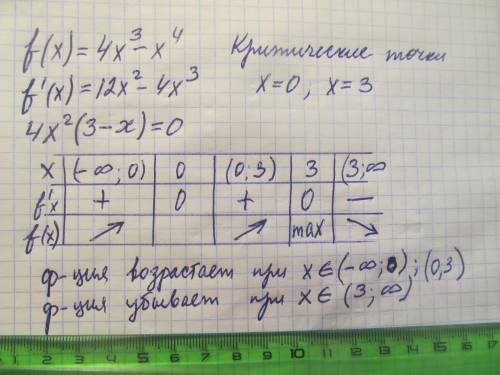 f(x) = 4x³ - x⁴ Критические точки
f'(x) = 12x² - 4x³ x=0, x=3
4x²(3-x)=0
x (-∞; 0) 0 (0; 3) 3 (3; ∞
f'x + 0 + 0 —
f(x) ↗ ↗ max ↘
ф-ция возрастает при x∈(-∞; 0); (0,3)
ф-ция убывает при x∈ (3; ∞)
1 2 3 4 5 6 7 8 9 10 11 12 13 14 15 16 17